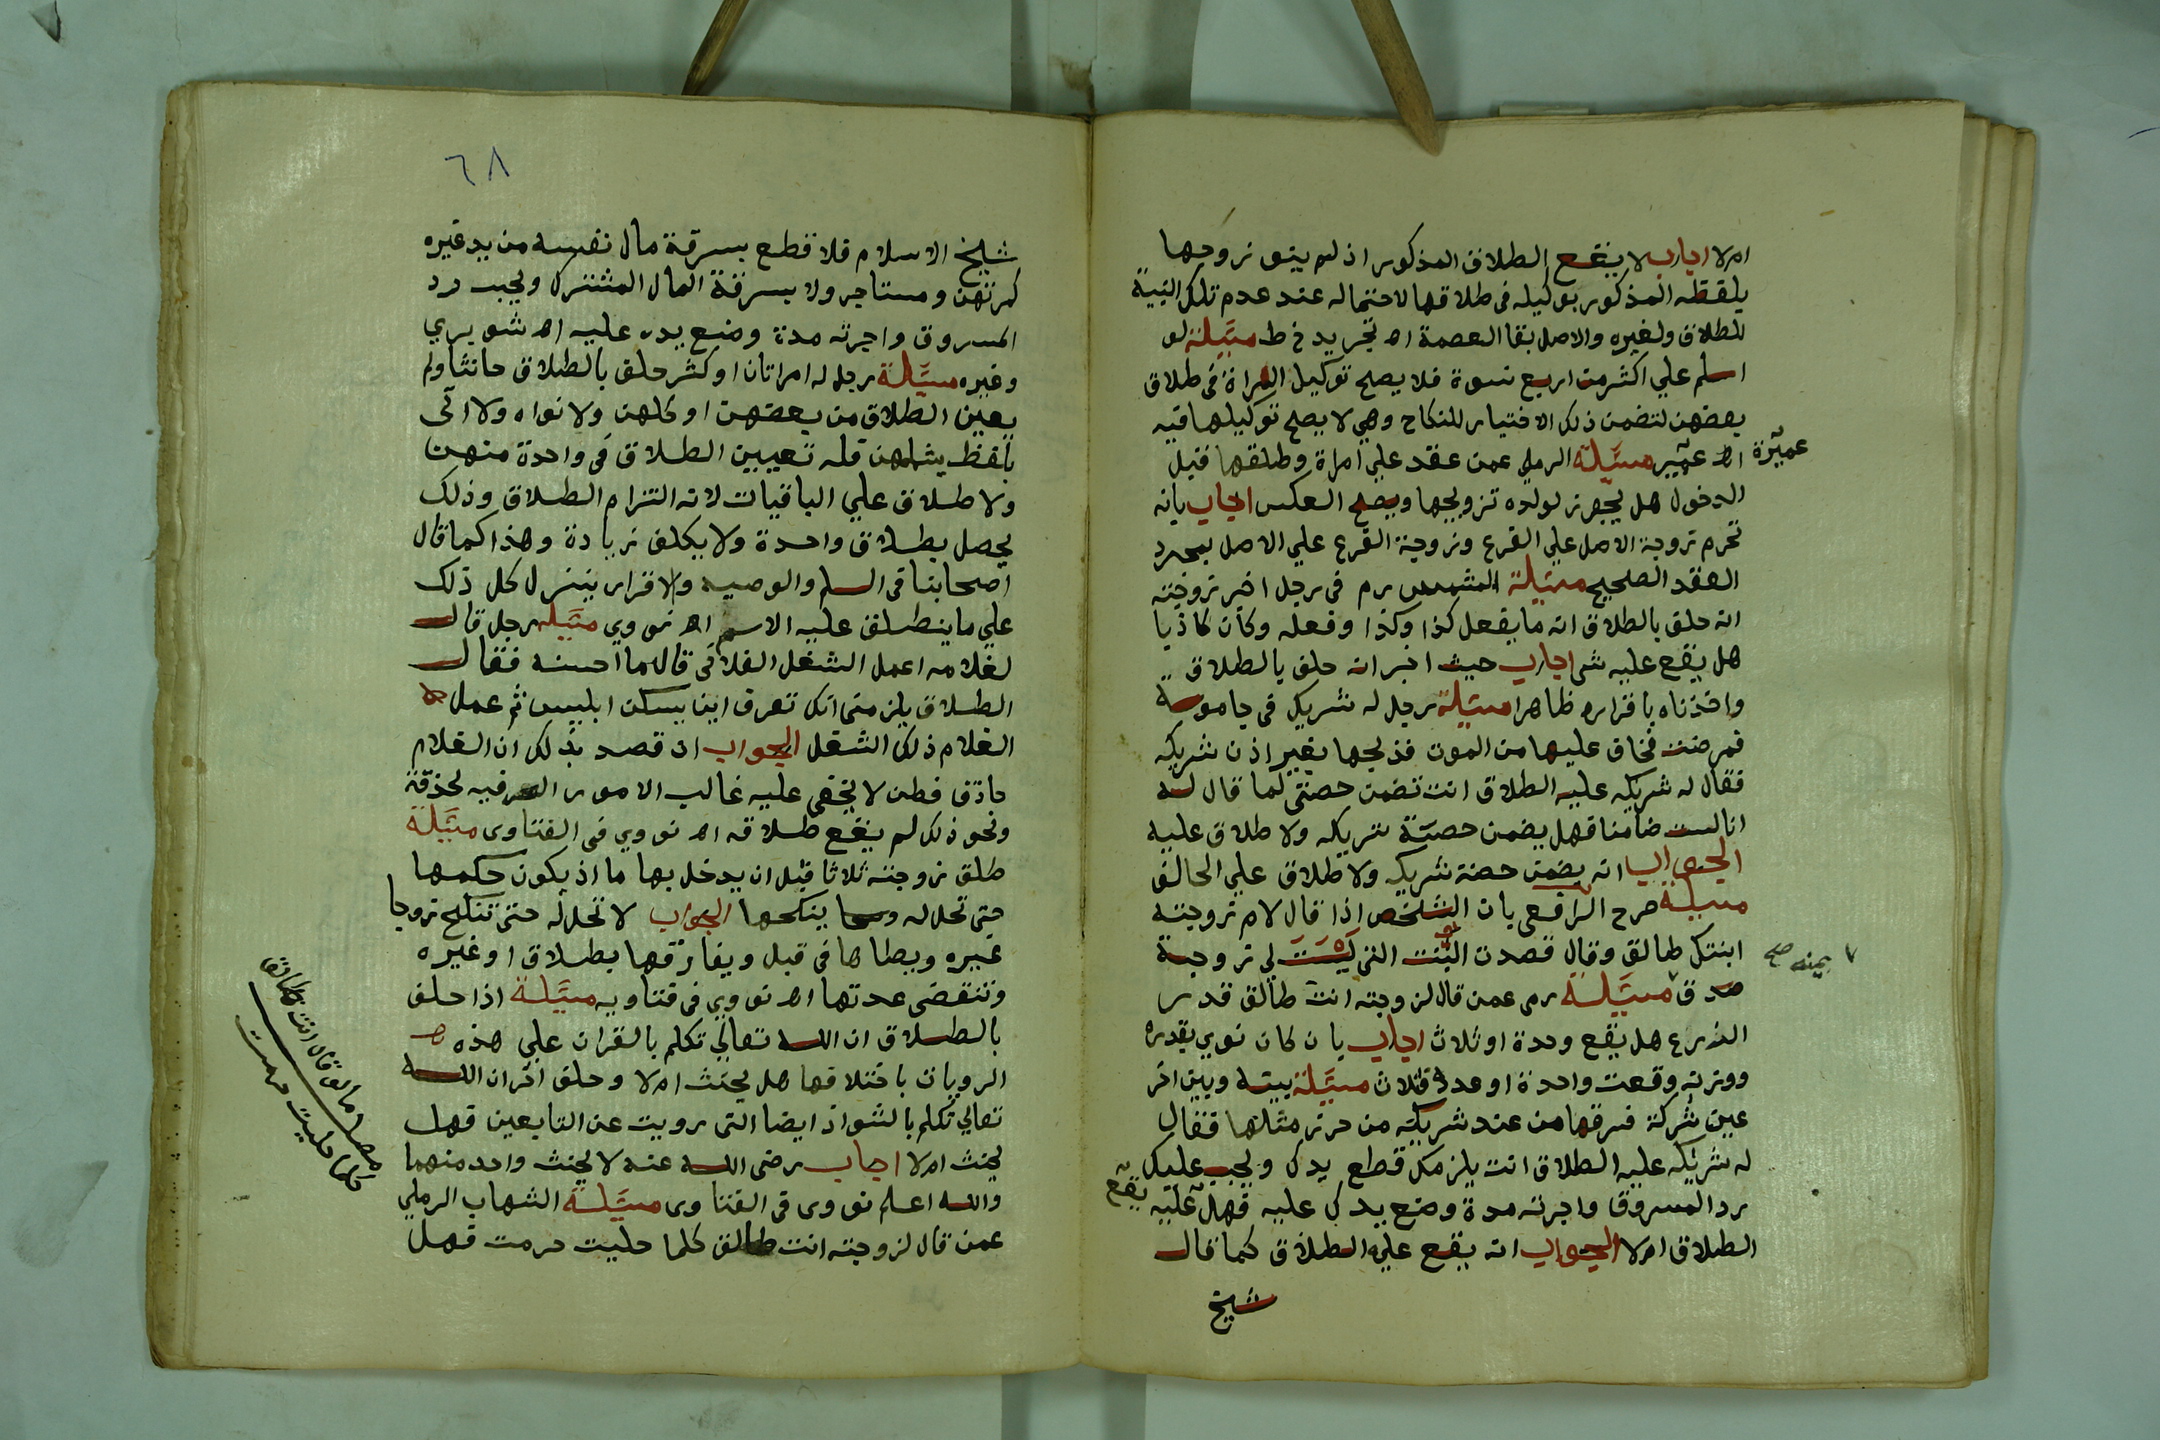 ام لا اجاب لا يقع الطلاق المذكور اذ لم ينو زوجها
بلفظه المذكور بوكيله في طلاقها لاحتماله عند عدم تلك النية
للطلاق ولغيره والاصل بقا العصمة اه تجريد خ ط مسئلة لو
اسلم علي اكثر من اربع نسوة فلا يصح توكيل المراة في طلاق
بعضهن لتضمن ذلك الاختيار للنكاح وهي لا يصح توكيلها فيه
اه عميرة مسئلة الرملي عمن عقد علي امراة وطلقها قبل
عميرة
الدخول هل يجوز لولده تزويجها ويصح العكس اجاب بانه
تحرم زوجة الاصل علي الفرع وزوجة الفرع علي الاصل بمجرد
العقد الصحيح مسئلة الشمس رم في رجل اخبر زوجته
انه حلف بالطلاق انه ما يفعل كذا وكذا وفعله وكان كاذبا
هل يقع عليه شي اجاب حيث اخبر انه حلف بالطلاق
واخذناه باقراره ظاهرا مسئلة رجل له شريك في جاموسة
فمرضت فخاف عليها من الموت فذبحها بغير اذن شريكه
فقال له شريكه عليه الطلاق انت تضمن حصتي كما قال له
انا لست ضامنا فهل يضمن حصة شريكه ولا طلاق عليه
الجواب انه يضمن حصة شريكه ولا طلاق علي الحالف
مسئلة صرح الرافعي بان الشخص اذا قال لام زوجته
ابنتك طالق وقال قصدت البنت التي ليست لي زوجة
بيمينه صح
صدق مسئلة رم عمن قال لزوجته انت طالق قدر
الذراع هل يقع وحدة او ثلاث اجاب بان كان نوي بقدره
ووتره وقعت واحدة او عدده فثلاث مسئلة بينه وبين اخر
عين شركة فسرقها من عند شريكه من حرز مثلها فقال
له شريكه عليه الطلاق انت يلزمك قطع يدك ويجب عليك
رد المسروق واجرته مدة وضع يدك عليه فهل عليه يقع
الطلاق ام لا الجواب انه يقع عليه الطلاق كما قال
شيخ
٦٨
شيخ الاسلام فلا قطع بسرقة مال نفسه من يد غيره
كمرتهن ومستاجر ولا بسرقة المال المشترك ويجب رد
المسروق واجرته مدة وضع يده عليه اه شوبري
وغيره مسئلة رجل له امراتان او كثر حلف بالطلاق حانثا ولم
يعين الطلاق من بعضهن او كلهن ولا نواه ولا اتى
بلفظ يشملهن فله تعيين الطلاق في واحدة منهن
ولا طلاق علي الباقيات لانه التزام الطلاق وذلك
يحصل بطلاق واحدة ولا يكلف زيادة وهذا كما قال
اصحابنا في السلم والوصية والاقرار ينزل كل ذلك
علي ما ينطلق عليه الاسم اه نووي مسئلة رجل قال
لغلامه اعمل الشغل الفلاني قال ما احسنه فقال
الطلاق يلزمني انك تعرف اين يسكن ابليس ثم عمل
الغلام ذلك الشغل الجواب ان قصد بذلك ان الغلام
حاذق فطن لا يخفى عليه غالب الامور العرفيه لحذقه
ونحو ذلك لم يقع طلاقه اه نووي في الفتاوى مسئلة
طلق زوجته ثلاثا قبل ان يدخل بها ما اذ يكون حكمها
حتى تحل له وينكحها الجواب لا تحل له حتى تنكح زوجا
غيره ويطاها في قبل ويفارقها بطلاق او غيره
وتنقضي عدتها اه نووي في فتاويه مسئلة اذا حلف
بالطلاق ان الله تعالي تكلم بالقران علي هذه
الرويات باختلافها هل يحنث ام لا وحلف اخر ان الله
تعالي تكلم بالشواذ ايضا التي رويت عن التابعين فهل
يحنث ام لا اجاب رضي الله عنه لا يحنث واحد منهما
والله اعلم نووي في الفتاوى مسئلة الشهاب الرملي
عمن قال لزوجته انت طالق كلما حليت حرمت فهل
كلما حليت حرمت